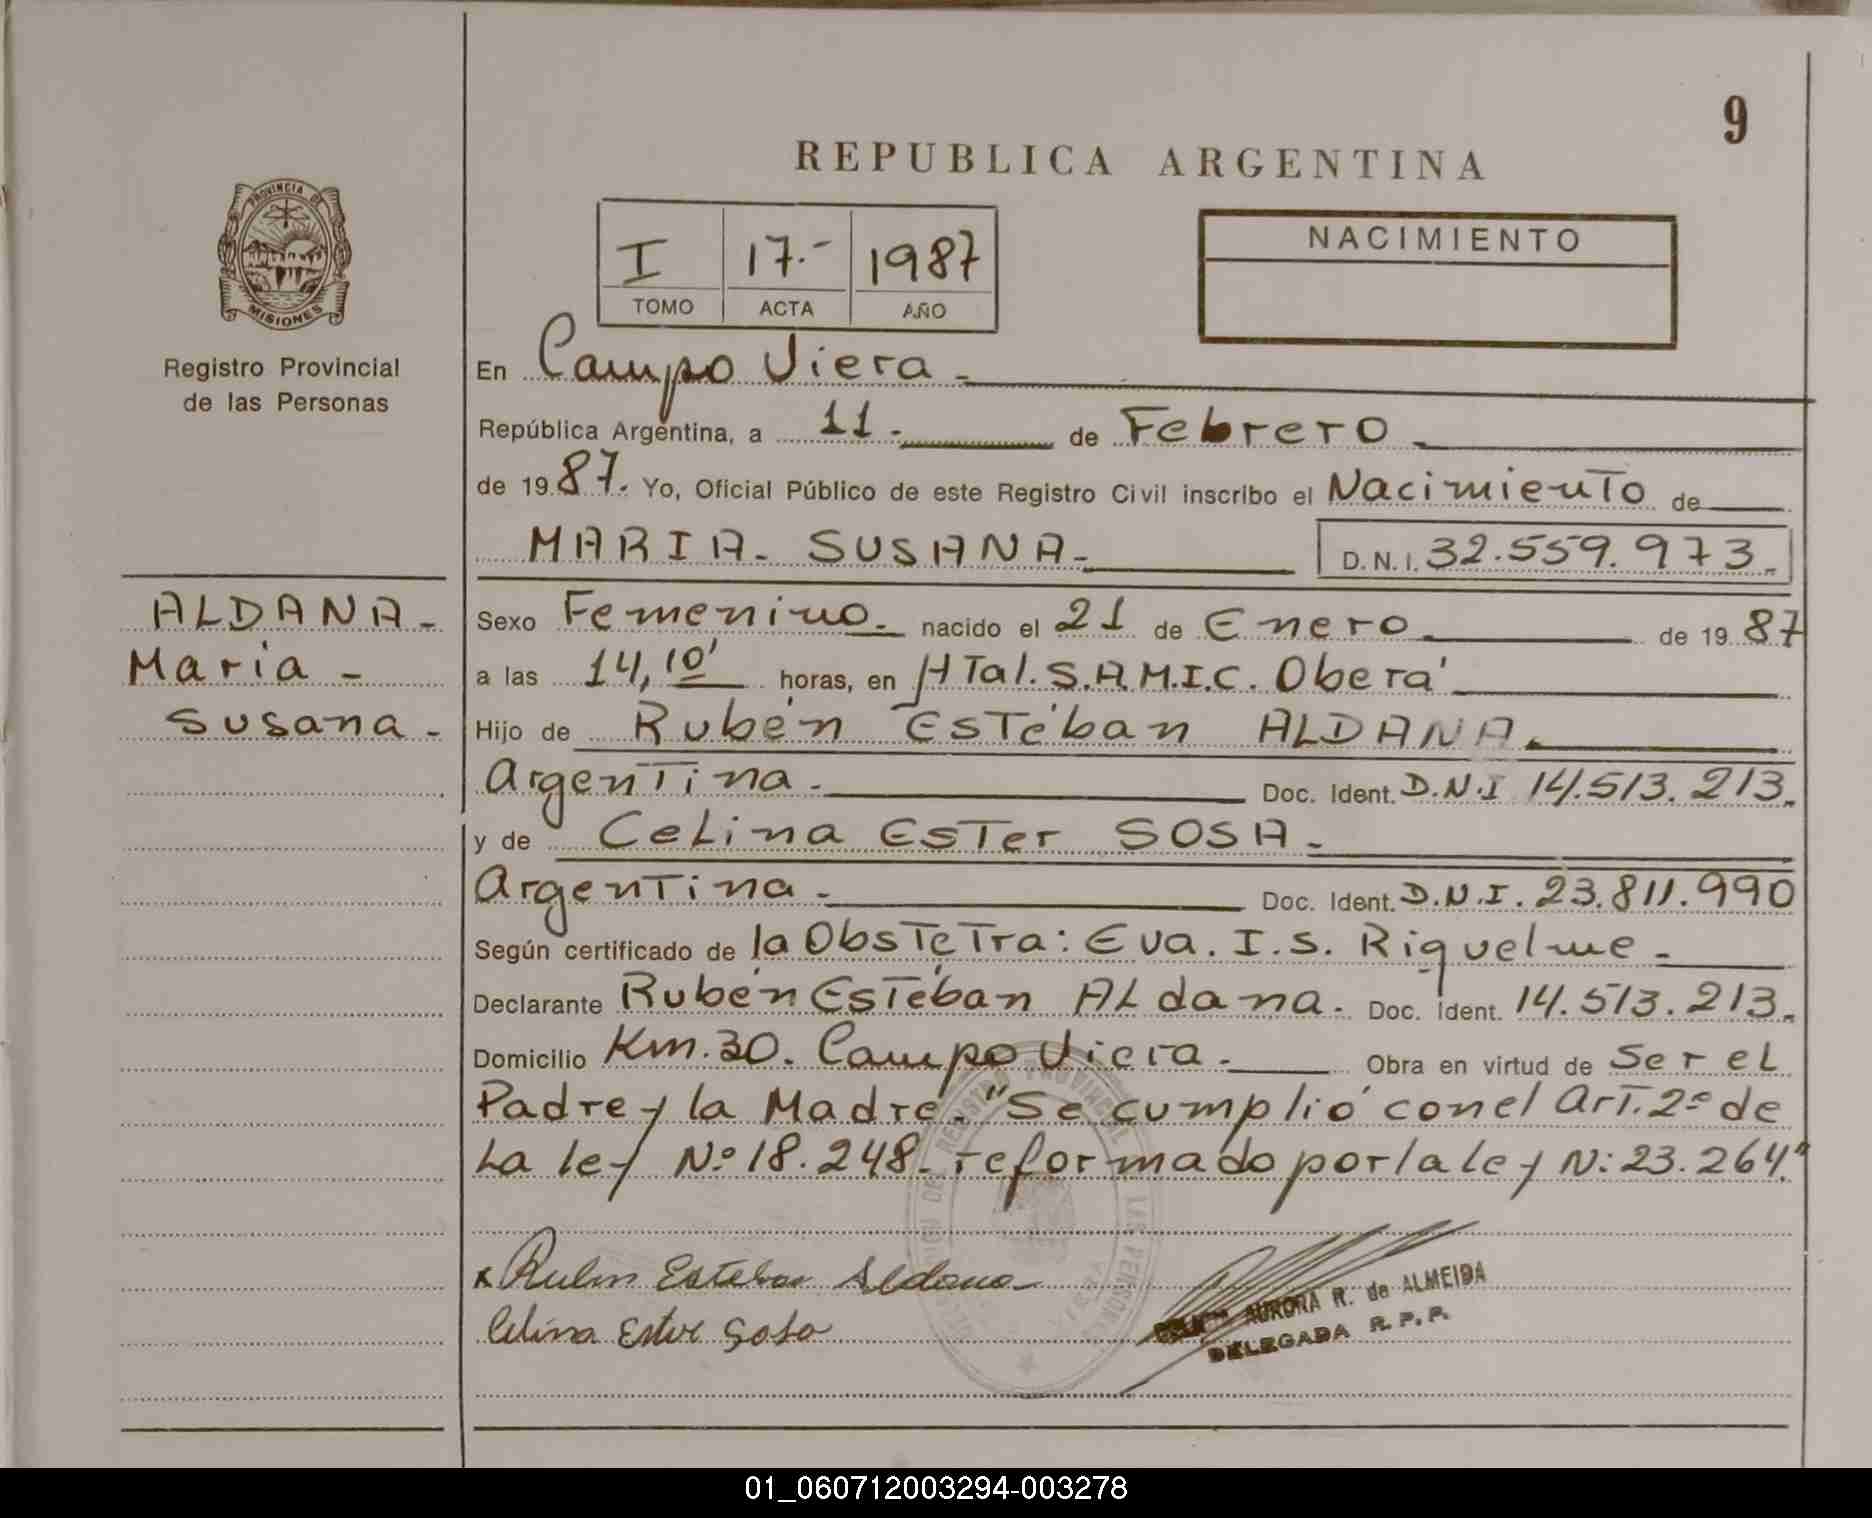 9
REPUBLICA ARGENTINA
PROVINCIA DE
MISIONES
Registro Provincial
de las Personas
I 17.- 1987
TOMO ACTA AÑO
NACIMIENTO
En Campo Viera -
República Argentina, a 11 - de Febrero -
de 1987. Yo, Oficial Público de este Registro Civil inscribo el Nacimiento de
MARIA - SUSANA - D. N. I. 32.559.973.
ALDANA -
Maria -
Susana -
Sexo Femenino - nacido el 21 de Enero de 1987
a las 14,10' horas, en HTal. S.A.M.I.C. Oberá
Hijo de Rubén Estéban ALDANA.
Argentina - Doc. Ident. D.N.I 14.513.213.
y de Celina Ester SOSA -
Argentina - Doc. Ident. D.N.I. 23.811.990
Según certificado de la Obstetra: Eva. I. S. Riquelme -
Declarante Rubén Estéban Aldana. Doc. Ident. 14.513.213.
Domicilio Km. 30. Campo Viera - Obra en virtud de Ser el
Padre y la Madre. "Se cumplió con el Art. 2º de
La ley Nº 18.248 - reformado por la ley N: 23.264"
x Ruben Esteban Aldana
Celina Ester Sosa
AURORA R. de ALMEIDA
DELEGADA R. P. P.
01_060712003294-003278